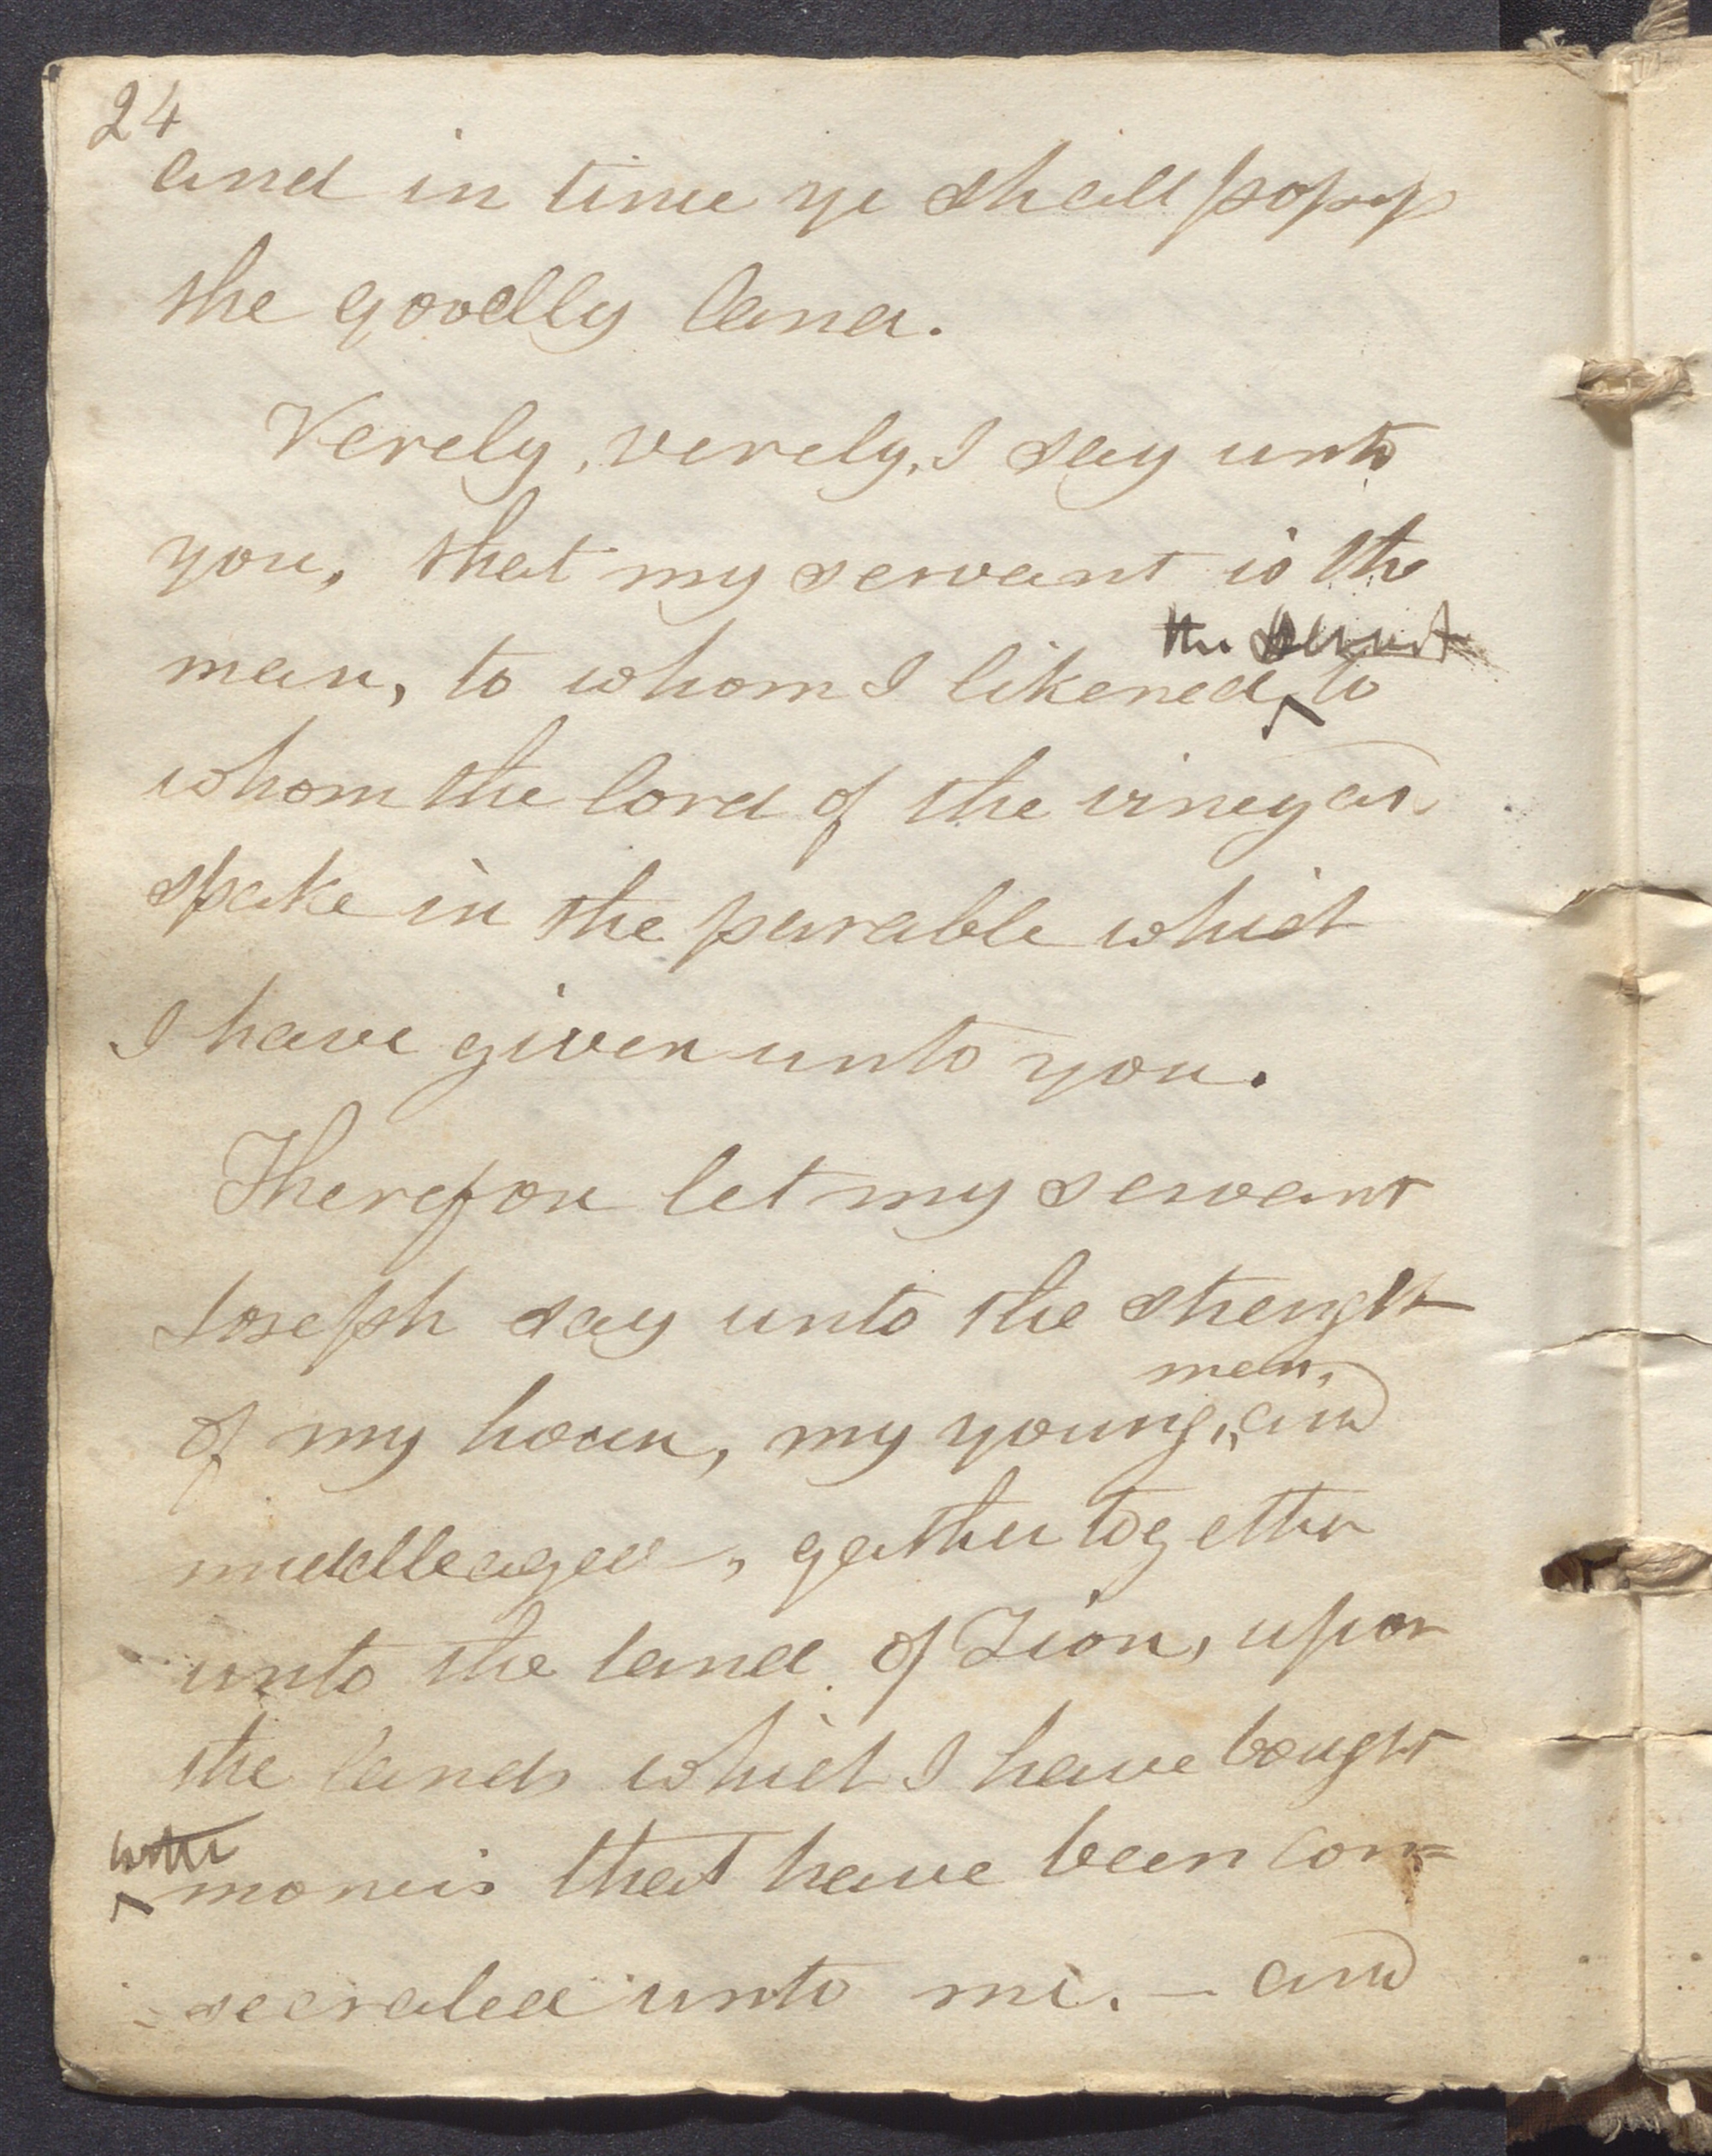 24
and in time ye shall possess
the goodly land.
Verely, verely, I say unto
you, that my servant is the
man, to whom I likened the servant to
whom the lord of the vineyard
spake in the parable which
I have given unto you.
Therefore let my servant
Joseph say unto the strength
of my house, my young men, and
middleaged, gather together
unto the land of Zion, upon
the lands which I have bought
with moneis that have been con=
secrated unto me. — and